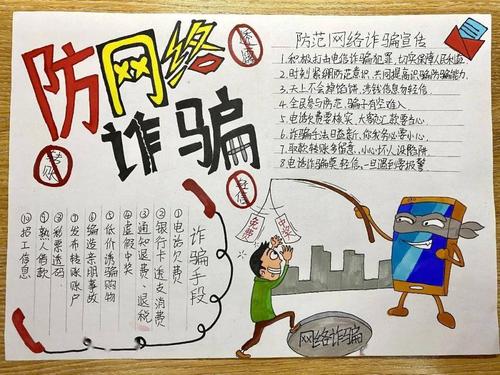 防网络
诈骗
透露
贷款
轻信
防范网络诈骗宣传
1.积极打击电信诈骗犯罪,切实保障人民利益
2.时刻紧绷防范意识,共同提高识骗防骗能力
3.天上不会掉馅饼,涉钱信息勿轻信
4.全民参与防范,骗子有空难入
5.电话收费要核实,大额汇款要当心
6.诈骗手法日益新,你我务必要小心
7.取款转账多留意,小心坏人设陷阱
8.电话诈骗莫轻信,一旦遇到要报警
诈骗手段
①电话欠费
②银行卡透支消费
③通知退费、退税
④虚假中奖
⑤低价诱骗购物
⑥编造亲朋事故
⑦发布转账账户
⑧彩票透码
⑨熟人借款
⑩招工信息
免费
中奖
网络诈骗